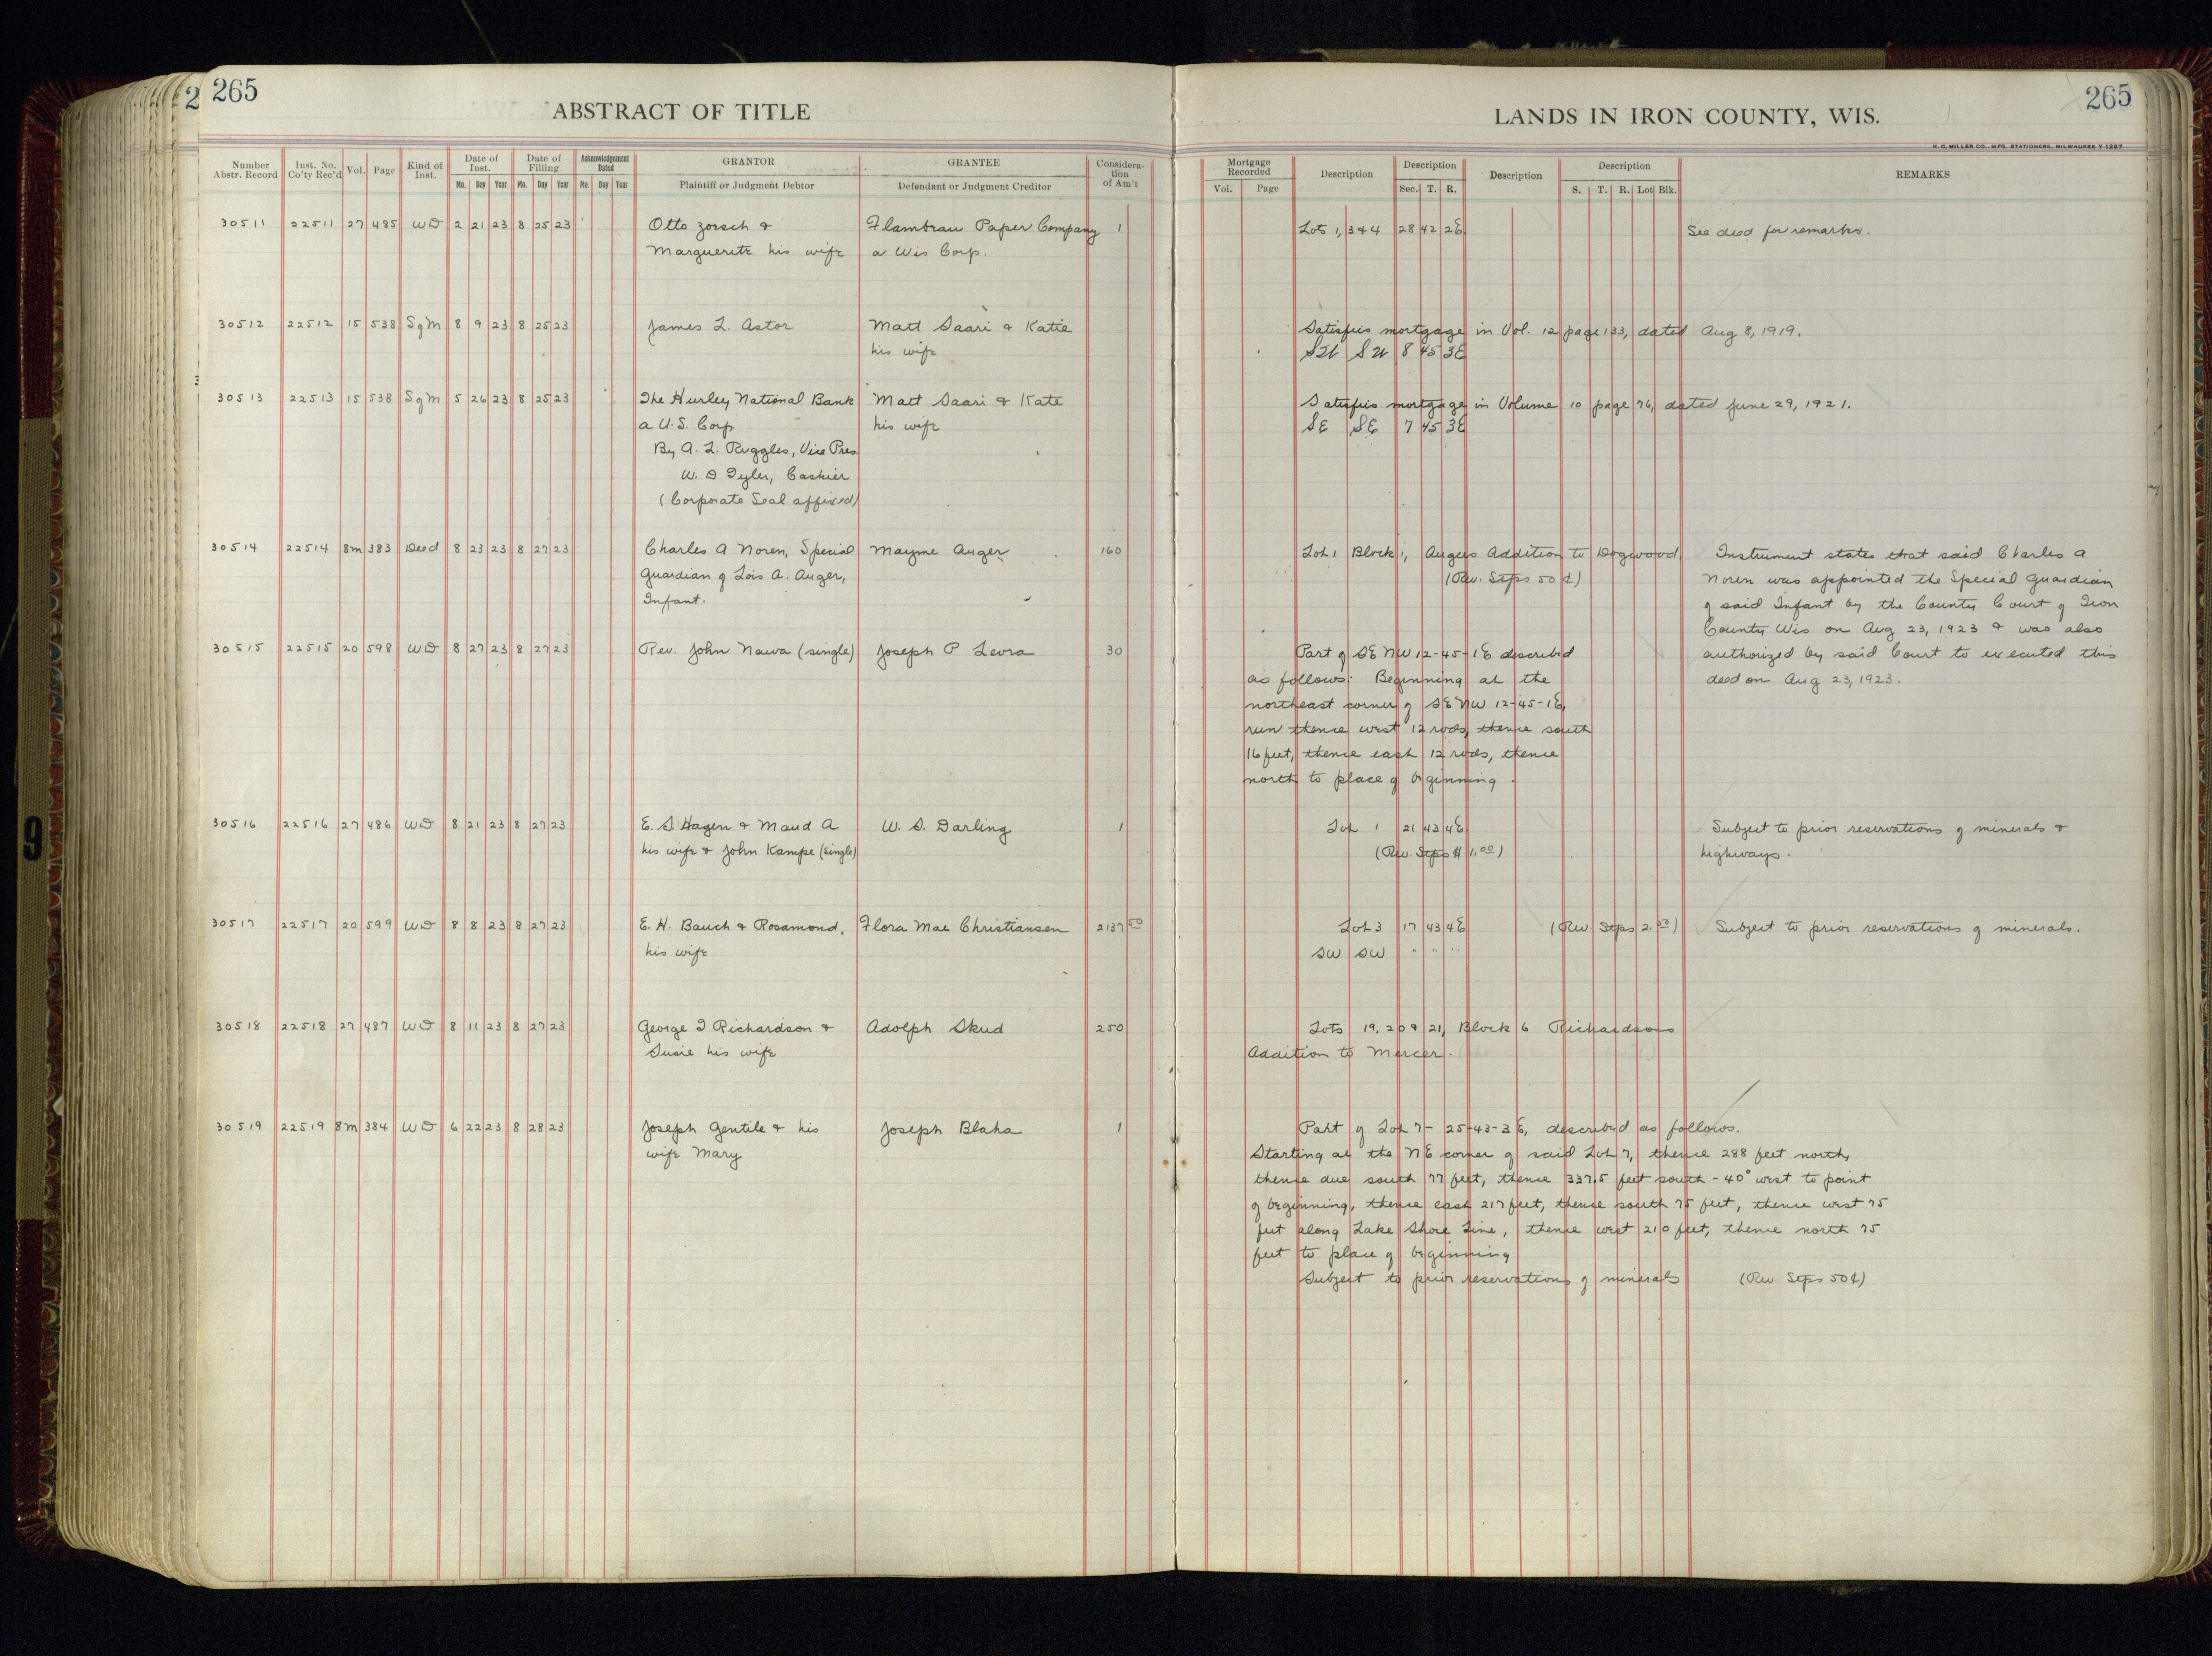 265
ABSTRACT OF TITLE
Number Abstr. Record Inst. No. Co'ty Rec'd Vol. Page Kind of Inst. Date of Inst. Mo. Day Year Date of Filling Mo. Day Year Acknowledgement Dated Mo. Day Year GRANTOR Plaintiff or Judgment Debtor GRANTEE Defendant or Judgment Creditor Consideration of Am't
30511 22511 27 485 WD 2 21 23 8 25 23 Otto Zoesch & Flambeau Paper Company 1
Marguerite his wife a Wis Corp.
30512 22512 15 538 SgM 8 9 23 8 25 23 James L. Astor Matt Saari & Katie
his wife
30513 22513 15 538 SgM 5 26 23 8 25 23 The Hurley National Bank Matt Saari & Kate
a U.S. Corp his wife
By A. L. Ruggles, Vice Pres.
W. D Tyler, Cashier
(Corporate Seal affixed)
30514 22514 8m 383 Deed 8 23 23 8 27 23 Charles A Noren, Special Mayme Auger 160
Guardian of Lois A. Auger,
Infant.
30515 22515 20 598 WD 8 27 23 8 27 23 Rev. John Nawa (single) Joseph P Levra 30
30516 22516 27 486 WD 8 21 23 8 27 23 E. S Hagen & Maud A W. S. Darling 1
his wife & John Kampe (single)
30517 22517 20 599 WD 8 8 23 8 27 23 E. H. Bauch & Rosamond, Flora Mae Christiansen 2137 50
his wife
30518 22518 27 487 WD 8 11 23 8 27 23 George I Richardson & Adolph Skud 250
Susie his wife
30519 22519 8m 384 WD 6 22 23 8 28 23 Joseph Gentile & his Joseph Blaha 1
wife Mary
265
LANDS IN IRON COUNTY, WIS.
H. C. MILLER CO., MFG. STATIONERS, MILWAUKEE
Mortgage Recorded Vol. Page Description Description Sec. T. R. Description Description S. T. R. Lot Blk. REMARKS
Lots 1, 3 & 4 28 42 2E See deed for remarks.
Satisfies mortgage in Vol. 12 page 133, dated Aug 8, 1919.
SW SW 8 45 3E
Satisfies mortgage in Volume 10 page 76, dated June 29, 1921.
SE SE 7 45 3E
Lot 1 Block 1, Augers Addition to Dogwood. Instrument states that said Charles A
(Rev. Stps 50¢) Noren was appointed the Special Guardian
of said Infant by the County Court of Iron
County Wis on Aug 23, 1923 & was also
Part of SE NW 12-45-1E described authorized by said Court to executed this
as follows: Beginning at the deed on Aug 23, 1923.
northeast corner of SE NW 12-45-1E,
run thence west 12 rods, thence south
16 feet, thence east 12 rods, thence
north to place of beginning.
Lot 1 21 43 4E Subject to prior reservations of minerals &
(Rev. Stps $1.00) highways.
Lot 3 17 43 4E (Rev. Stps 2.50) Subject to prior reservations of minerals.
SW SW " " "
Lots 19, 20 & 21, Block 6 Richardsons
Addition to Mercer.
Part of Lot 7- 25-43-3E, described as follows.
Starting at the NE corner of said Lot 7, thence 288 feet north,
thence due south 77 feet, thence 337.5 feet south - 40° west to point
of beginning, thence east 217 feet, thence south 75 feet, thence west 75
feet along Lake Shore Line, thence west 210 feet, thence north 75
feet to place of beginning
Subject to prior reservations of minerals (Rev. Stps 50¢)